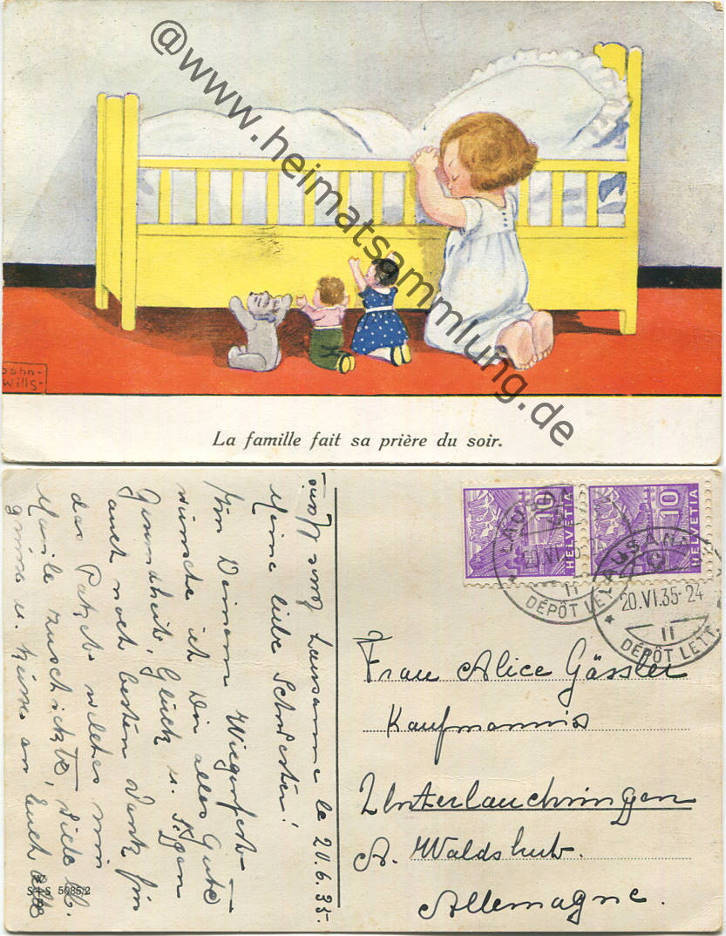 @www.heimatsammlung.de
John-
Wills-
La famille fait sa prière du soir.
Lausanne le 20.6.35.
Meine liebe Schwester!
Deinem Wiegenfest
wünsche ich Dir alles Gute
Gesundheit, Glück u. Segen
auch noch besten Dank für
das Paket welches mir
zuschickte,
grüsse u. küsse an Euch alle
S+S 5085/2
10 HELVETIA
10 HELVETIA
LAUSANNE
20.VI.35-24
11
DÉPÔT LETT.
Frau Alice Gässler
Kaufmannis
Unterlauchringen
A. Waldshut.
Allemagne.